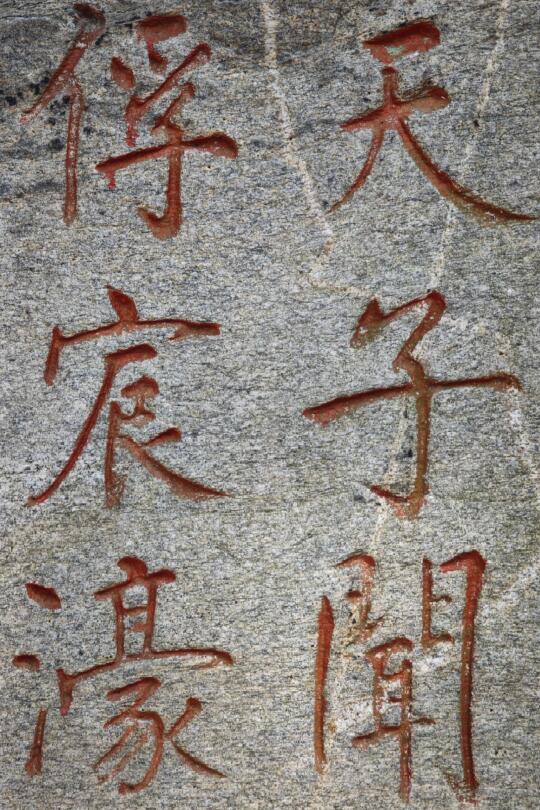 天子聞
俘宸濠